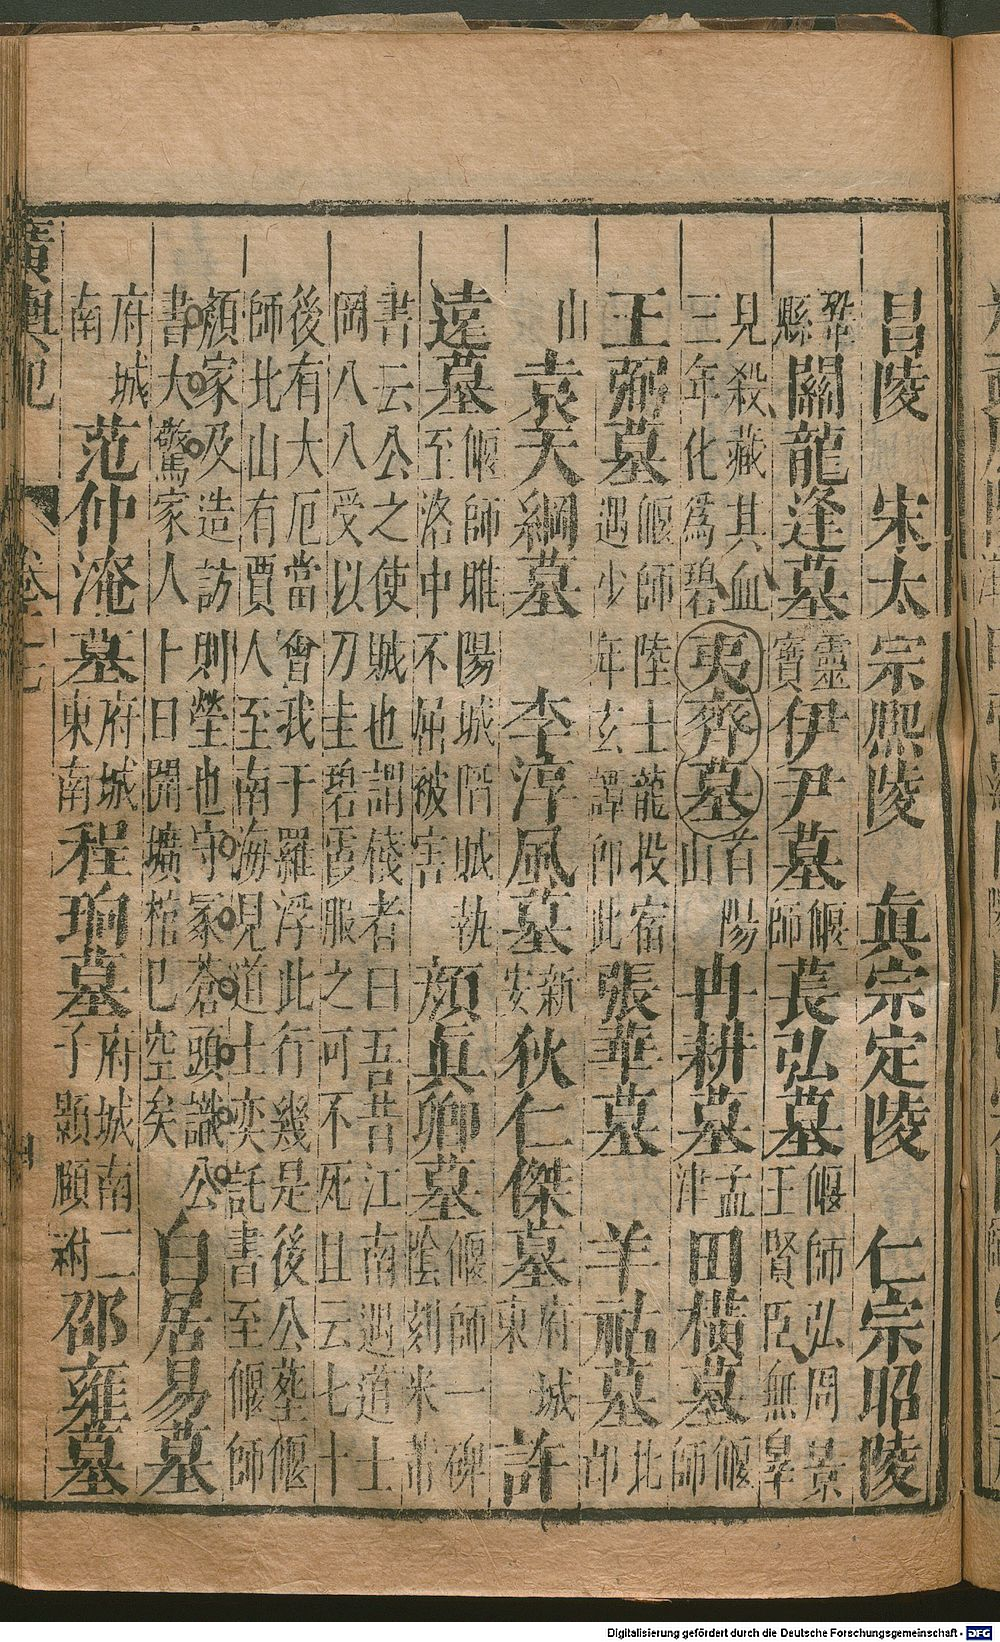 昌陵　宋太宗熙陵　眞宗定陵　仁宗昭陵
鞏縣　關龍逢墓靈寶伊尹墓偃師萇弘墓偃師弘周景王賢臣無辠
見殺藏其血三年化爲碧夷齊墓首陽山冉耕墓孟津田橫墓偃師
王弼墓偃師陸士龍投宿遇少年玄譚卽此張華墓　羊祜墓北邙
山　袁天綱墓　李淳風墓新安狄仁傑墓府城東　許
遠墓偃師睢陽城陷賊執至洛中不屈被害　顔眞卿墓偃師一碑陰刻米芾
書云公之使賊也謂餞者曰吾昔江南遇道士
岡八八受以刀圭碧霞服之可不死且云七十
後有大厄當會我于羅浮此行幾是後公塟偃
師北山有賈人至南海見道士奕託書至偃師
顏家及造訪則塋也守冢蒼頭識公書大驚家人卜日開壙棺已空矣　白居易墓
府城南　范仲淹墓府城東南程珦墓府城南二子顥頤祔邵雍墓
廣輿記
Digitalisierung gefördert durch die Deutsche Forschungsgemeinschaft - DFG